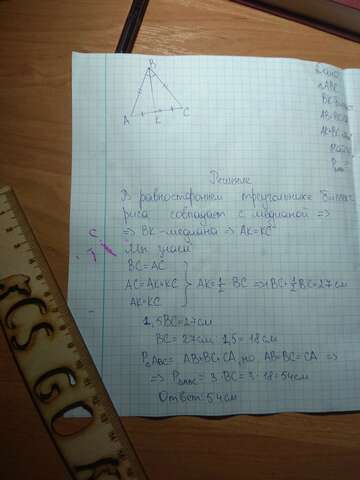 B
A
K
C
Дано
△ABC
BK
AB=BC
AK+BC
P
Решение
В равностороннем треугольнике биссект
риса совпадает с медианой =>
=> BK-медиана => AK=KC
Мы знаем
BC=AC
AC=AK+KC } AK=1/2 BC => 1BC+1/2BC=27см
AK=KC
1,5BC=27см
BC = 27см : 1,5 = 18см
P△ABC = AB+BC+CA, но AB=BC=CA =>
=> P△ABC = 3·BC = 3·18=54см
Ответ: 54см